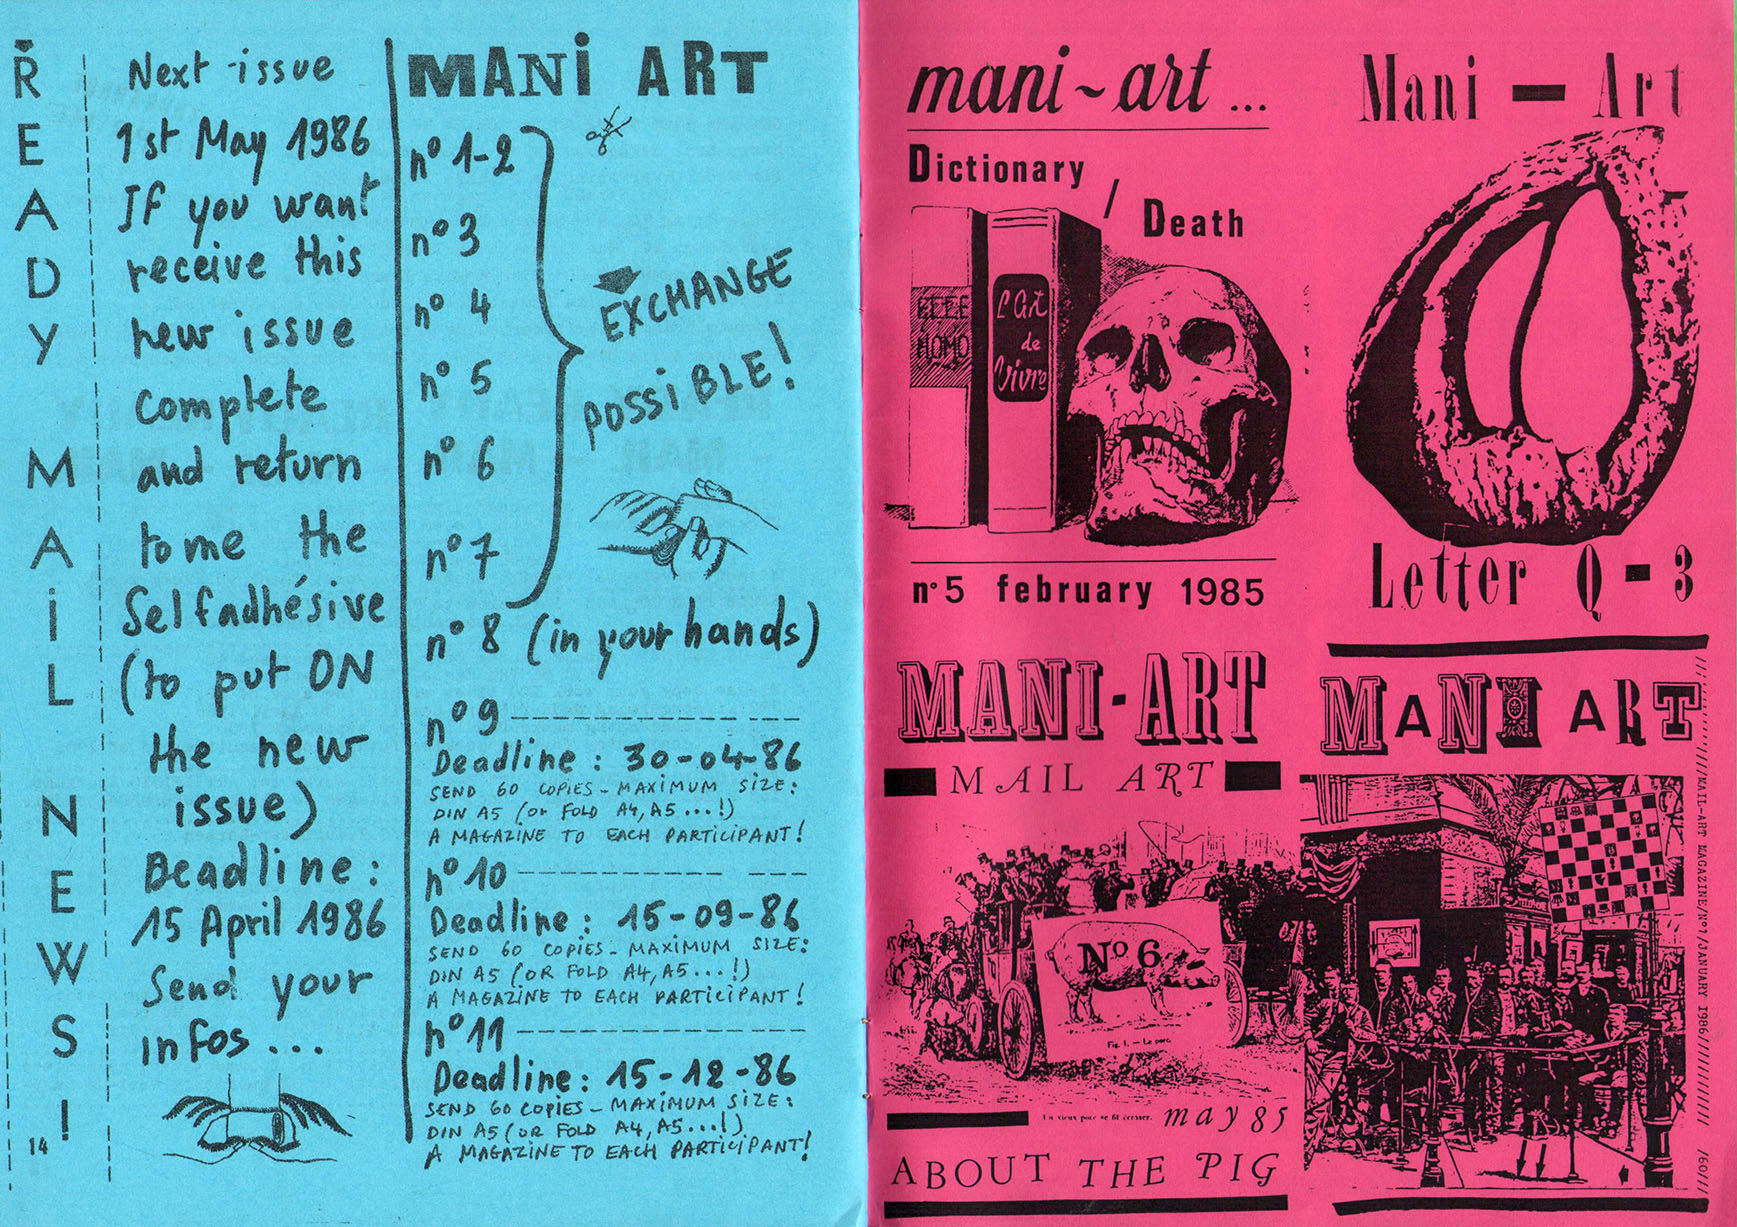 READY MAiL NEWS!
Next issue
1st May 1986
If you want
receive this
new issue
complete
and return
to me the
Selfadhésive
(to put ON
the new
issue)
Deadline :
15 April 1986
Send your
infos ...
14
MANi ART
n° 1-2
n° 3
n° 4
n° 5
n° 6
n° 7
EXCHANGE
POSSiBLE!
n° 8 (in your hands)
n° 9
Deadline : 30-04-86
SEND 60 COPIES - MAXIMUM SIZE:
DIN A5 (OR FOLD A4, A5 ...!)
A MAGAZINE TO EACH PARTICIPANT!
n° 10
Deadline : 15-09-86
SEND 60 COPIES - MAXIMUM SIZE:
DIN A5 (OR FOLD A4, A5 ...!)
A MAGAZINE TO EACH PARTICIPANT!
n° 11
Deadline : 15-12-86
SEND 60 COPIES - MAXIMUM SIZE:
DIN A5 (OR FOLD A4, A5 ...!)
A MAGAZINE TO EACH PARTICIPANT!
mani~art ...
Dictionary
/
Death
HOMO
L'Art
de
Vivre
n°5 february 1985
Mani - Art
Letter Q - 3
MANI-ART
MAIL ART
No 6
Fig. 1. — Le porc.
Un vieux porc se fit écraser.
may 85
ABOUT THE PIG
MANI ART
/MAIL-ART MAGAZINE/N°7/JANUARY 1986/
/60/